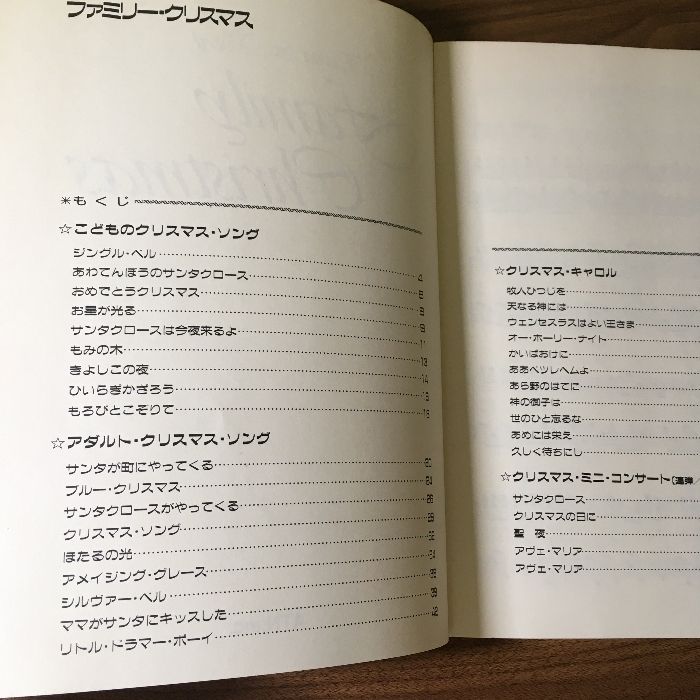 ファミリー・クリスマス
＊もくじ
☆こどものクリスマス・ソング
ジングル・ベル
あわてんぼうのサンタクロース 4
おめでとうクリスマス 6
お星が光る 8
サンタクロースは今夜来るよ 9
もみの木 11
きよしこの夜 13
ひいらぎかざろう 14
もろびとこぞりて
☆アダルト・クリスマス・ソング
サンタが町にやってくる
ブルー・クリスマス
サンタクロースがやってくる
クリスマス・ソング
ほたるの光
アメイジング・グレース
シルヴァー・ベル
ママがサンタにキッスした
リトル・ドラマー・ボーイ
☆クリスマス・キャロル
牧人ひつじを
天なる神には
ウェンセスラスはよい王さま
オー・ホーリー・ナイト
かいばおけに
ああベツレヘムよ
あら野のはてに
神の御子は
世のひと忘るな
あめには栄え
久しく待ちにし
☆クリスマス・ミニ・コンサート(連弾／
サンタクロース
クリスマスの日に
聖夜
アヴェ・マリア
アヴェ・マリア